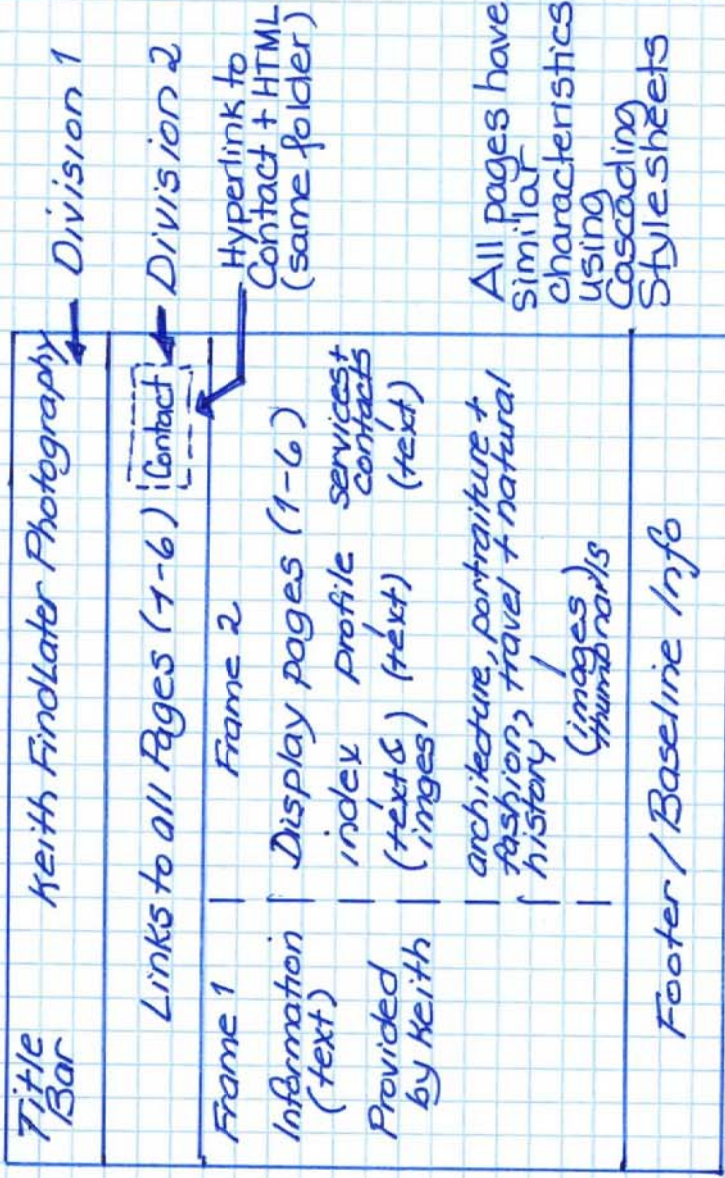 Title
Bar
Keith FindLater Photography
Division 1
Links to all Pages (1-6)
Contact
Division 2
Hyperlink to
Contact + HTML
(same folder)
Frame 1
Information
(text)
Provided
by Keith
Frame 2
Display pages (1-6)
index
(text &
imges)
profile
(text)
services+
contacts
(text)
architecture, portraiture +
fashion, travel + natural
history
(images)
thumbnails
All pages have
similar
characteristics
using
Cascading
Stylesheets
Footer / Baseline Info